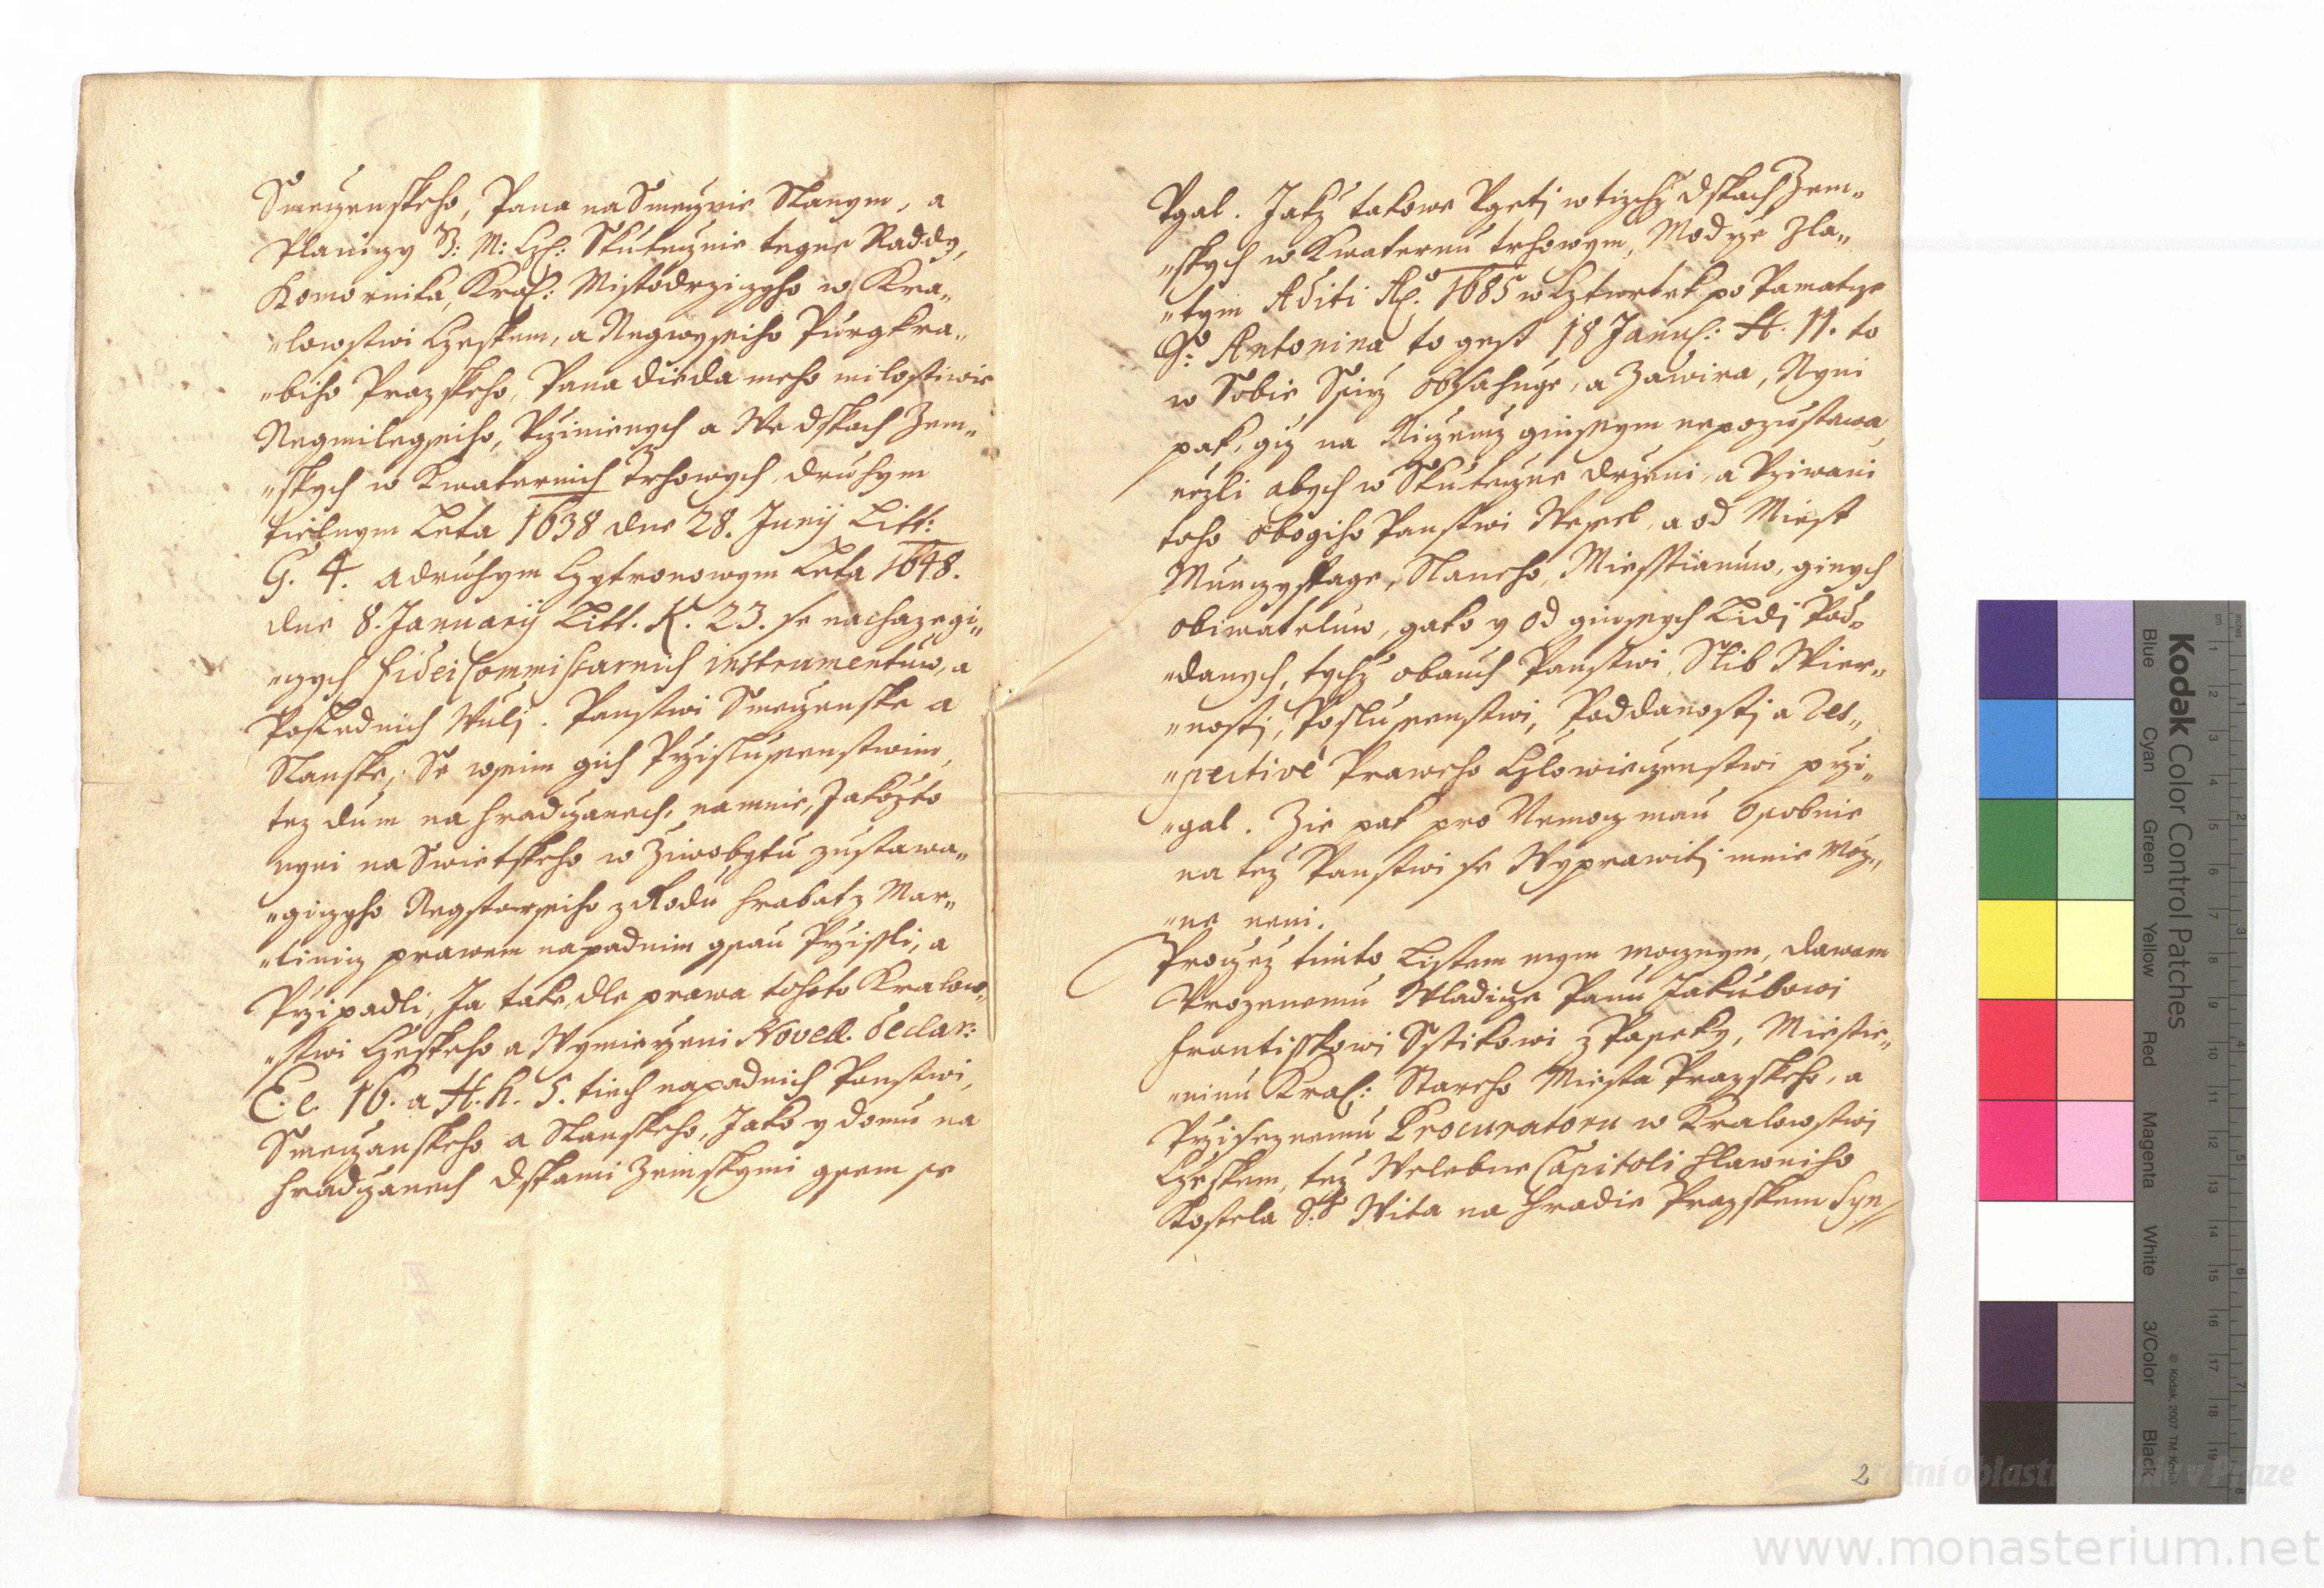 Smeczenskeho, Pana na Smecznie Slanym, a
Planiczy J: M: Czs: Skutecznie tegne Raddy,
Komornika, Kral: Mistodrzicyho w Kra„
„lowstwi Czeskem, a Negwyssiho Purgkra„
„biho Prazskeho, Pana dieda meho milostiwie
Negmilegssiho, Vczinienych a We dskach Zem„
„skych w Kwaternich Trhowych, druhym
tielnym Leta 1638 dne 28. Junij Litt:
G. 4. a druhym Czytronowym Leta 1648.
dne 8. Januarij Litt. K. 23. se nachazegi„
„czych fidei Commissarnich instrumentuw, a
Poslednich Wuli. Panstwi Smeczenske a
Slanske, Se wssim gich Przislussenstwim,
tez dum na Hradczanech, na mnie, Jakozto
nyni na Swietskeho w Ziwobytu zustawa„
„gicyho Negstarssiho z Rodu Hrabat z Mar„
„tinicz prawem napadnim gsau Przissli, a
Przipadli, Ja take, dle prawa tohoto Kralow„
„stwi Czeskeho a Wymierzeni Novell. declar:
E. e. 16. a H. h. 5. tiech napadnich Panstwi,
Smeczanskeho a Slanskeho, Jako y domu na
Hradczanech dskami Zemskymi gsem se
Vgal. Jakz takowe Vgeti w tiechz dskach Zem„
„skych w Kwaternu trhowym, Modrze Zla„
„tym Aditi Ao. 1685 w Cztwrtek po Pamatcze
S: Antonina to gest 18 Janu: H. 11. to
w Sobie Ssirz obsahuge, a Zawira, Nyni
pak, giz na Niczemz ginssym nepozustawa,
nezli abych w Skuteczne drzeni, a Vziwani
toho obogiho Panstwi Wessel, a od Miest
Munczyfage, Slaneho, Miesstianuw, ginych
obiwateluw, gako y od ginssych Lidi Pod„
„danych, tychz obauch Panstwi, Slib Wier„
„nosti, Poslussenstwi, Poddanosti a Res„
„pective Praweho Czlowieczenstwi przi„
„gal. Zie pak pro Nemocz mau Osobnie
na tez Panstwi se Wyprawiti mnie Moz„
„ne neni.
Procezez timto Listem mym mocznym, dawam
Vrozenemu Wladicze Panu Jakubowi
Frantisskowi Sstikowi z Paseky, Miestie„
„ninu Kral: Stareho Miesta Prazskeho, a
Przisseznemu Procuratoru w Kralowstwi
Czeskem, tez Welebne Capitoli Hlawniho
Kostela S.t Wita na Hradie Prazskem Syn„
2
Kodak Color Control Patches
Blue Cyan Green Yellow Red Magenta White 3/Color Black
© Kodak, 2007 TM: Kodak
www.monasterium.net